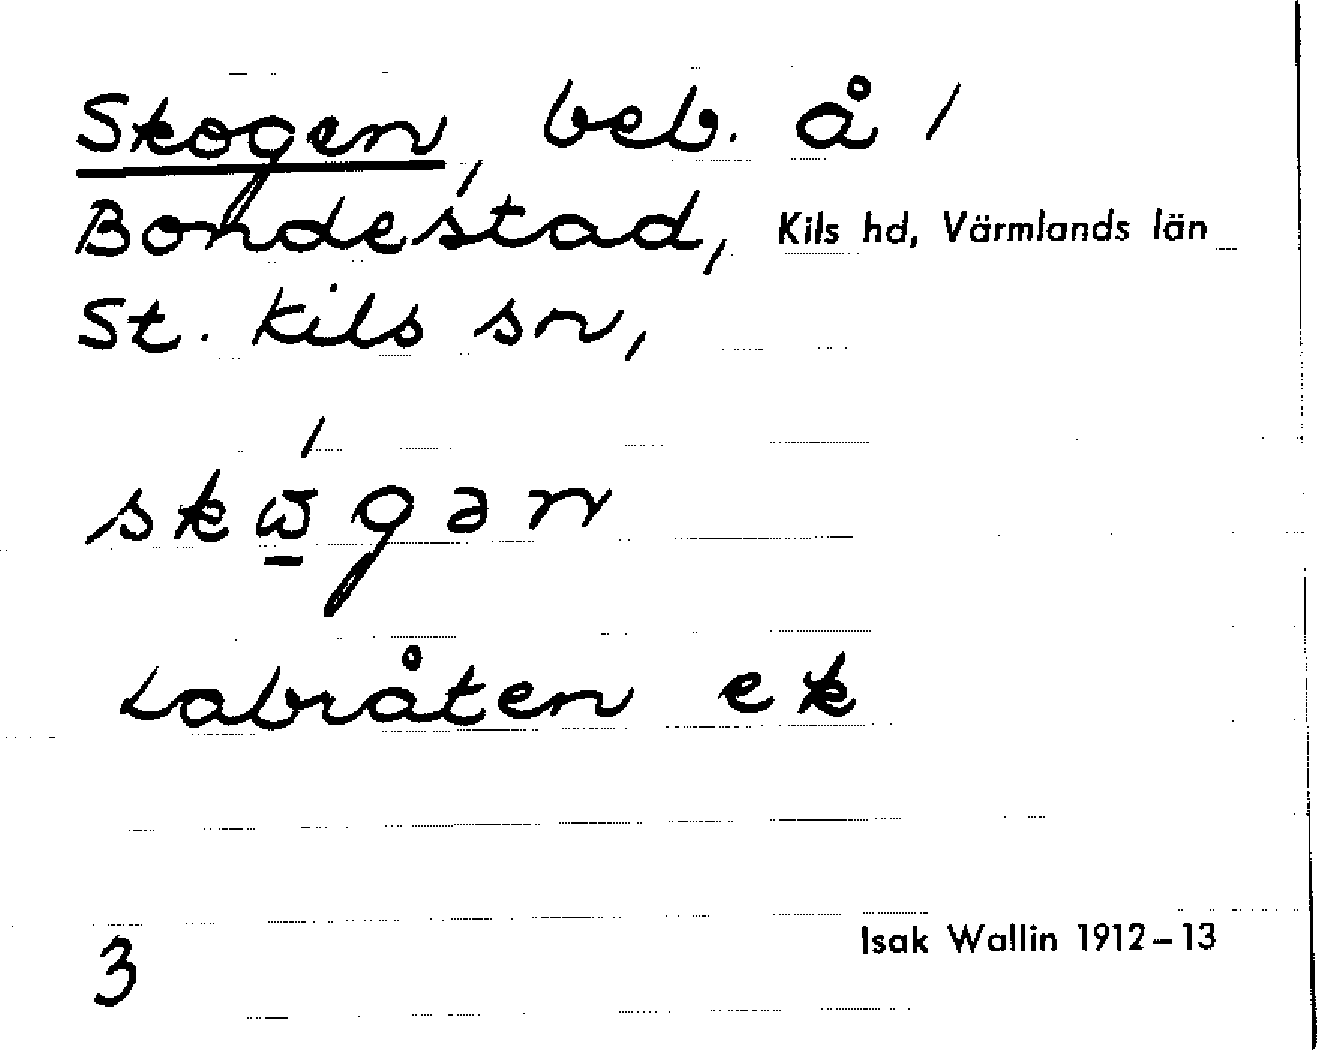 Skogen, beb. å 1
Bondestad, Kils hd, Värmlands län
St. Kils sn,
skώ̲gən
Labråten ek
3
Isak Wallin 1912–13